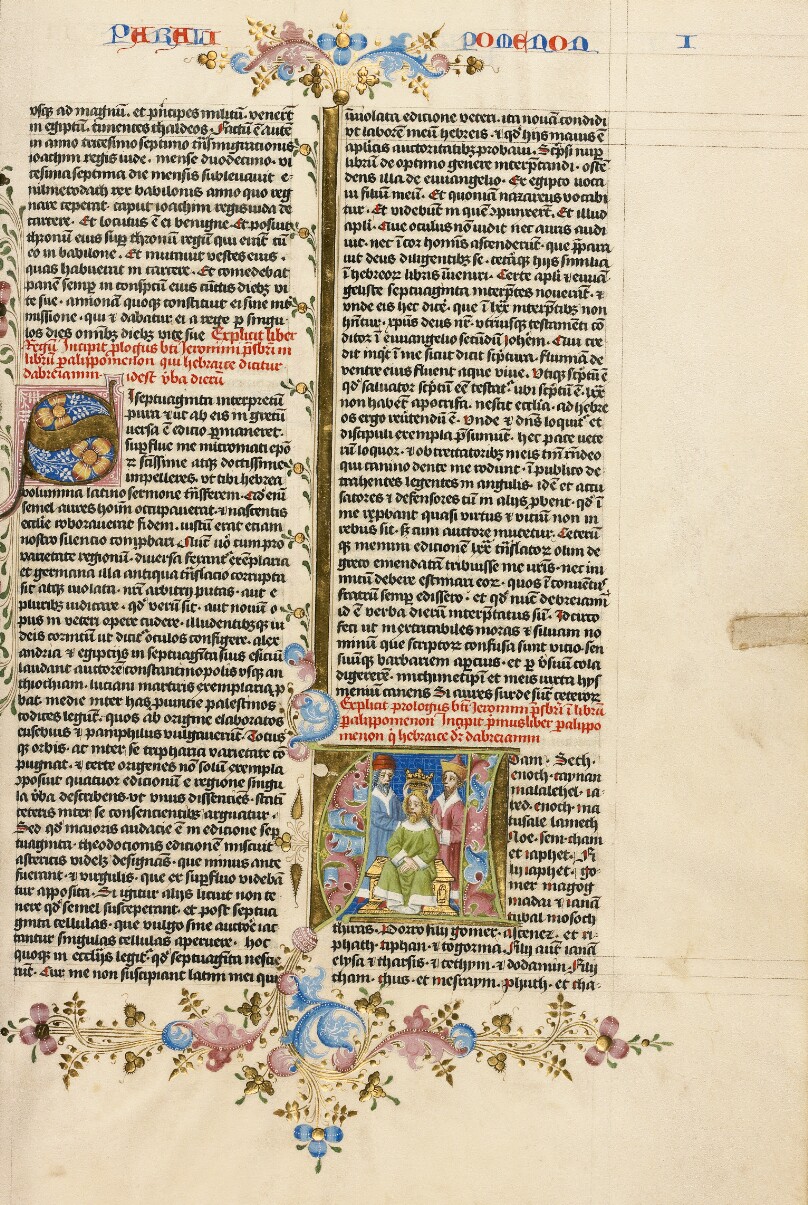 PARALI POMENON I
usq ad magnū. et prīcipes militū. venerūt
in egiptū. timentes chaldeos. Factū ē autē
in anno tricesimo septimo trāsmigrationis
ioachim regis iude. mense duodecimo. vi
cesimaseptima die mensis subleuauit e-
uilmerodach rex babilonis anno quo reg
nare ceperat. caput ioachim regis iuda de
carcere. Et locutus ē ei benigne. Et posiuit
thronū eius sup thronū regū qui erāt cū
eo in babilone. Et mutauit vestes eius.
quas habuerat in carcere. Et comedebat
panē semp in conspectu eius cūctis dieb vi
te sue. annonā quoq constituit ei sine int
missione. que et dabatur ei a rege p singu
los dies omnib dieb vite sue Explicit liber
Regū Incipit plogus bti Jeronimi psbri in
librū palippomenon qui hebraice dicitur
dabreiamin idest vba dierū
SI septuaginta interpretū
pura et ut ab eis in grecū
versa ē editio pmaneret.
supflue me mi cromati epo
et scissime atq doctissime
impelleres. ut tibi hebrea
volumina latino sermone trāsferem. Qd enī
semel aures hoīm occupauerat. et nascentis
ecclie roborauerat fidem. iustū erat etiam
nostro silentio comphari. Nūc vō cum pro
varietate regionū. diuersa ferant exēplaria
et germana illa antiqua trāslacio corrupta
sit atq violata. nrī arbitrii putas. aut e
pluribs iudicare. qd verū sit. aut nouū o-
pus in veteri opere cudere. illudentibsq iu
deis cornicū ut dicit oculos configere. alex
andria et egiptus in septuagīta suis esiciū
laudant auctorē constantinopolis usq an
thiochiam. luciani martiris exemplaria p
bat. medie inter has puincie palestinos
codices legūt. quos ab origine elaboratos
eusebius et pamphilus vulgauerūt. Totus
q orbis. ac inter se tripharia varietate co
pugnat. et certe origenes nō solū exempla
cposuit quatuor editionū e regione singu
la vba describens. ut vnus dissentiēs. statī
ceteris inter se consencientib arguatur.
Sed qd maioris audacie ē in edicione sep
tuaginta. theodocionis editionē miscuit.
astericis videlz designās. que minus ante
fuerant. et virgulis. que ex supfluo videbā
tur apposita. Si igitur aliis licuit non te
nere qd semel susceperant. et post septua
ginta cellulas. que vulgo sine auctōe iac
tantur singulas cellulas aperuere. hoc
quoq in ecclijs legit. qd septuagīta nescie
rūt. Cur me non suscipiant latini mei qui
inuiolata edicione veteri. ita nouā condidi
ut laborē meū hebreis. et qd hijs maius ē
aplicis auctoritatib probaui. Scpsi nup
librū de optimo genere interptandi. osten
dens illa de euuangelio. Ex egipto uoca
ui filiū meū. Et quoniā nazareus vocabi
tur. Et videbūt in quē cpunxerūt. Et illud
apli. Que oculus nō uidit nec auris audi
uit. nec ī cor homīs ascenderūt. que ppara
uit deus diligentibs se. ceteraq hijs similia
ī hebreor libris iueniri. Certe apli et euuan
geliste septuaginta interptes nouerāt. et
vnde eis hec dicē. que ī lxx interptibs non
hntur. xpius deus nr. vtriusq testamēti co
ditor ī euuangelio secūdū iohēm. Qui cre
dit inqt ī me sicut dicit scptura. flumina de
ventre eius fluent aque viue. Utiq scptū ē
qd saluator scptū eē testat. ubi scptū ē. lxx
non habēt. apocrifa. nescit ecclia. ad hebre
os ergo reuertendū ē. Unde et dns loquit. et
discipuli exempla psumūt. hec pace vete
rū loquor. et obtrectatorib meis tm rūdeo
qui canino dente me rodunt. ī publico de-
trahentes legentes in angulis. idē et accu
satores et defensores cū in aliis pbent. qd ī
me repbant quasi virtus et vitiū non in
rebus sit. sz cum auctore mutetur. Ceterū
q memini editionē lxx trāslator olim de
greco emendatā tribuisse me uris. nec ini
micū debere estimari eor. quos ī conuētu
fratrū semp edissero. et qd nūc dabreiamī
id ē verba dierū interptatus sū. Idcirco
feci ut inextricabiles moras et siluam no
minū que scriptor confusa sunt vitio. sen
suūq barbariem apctius. et p vsuū cola
digererē. michimetipi et meis iuxta hys
meniū canens Si aures surde sūt ceteror
Explicit prologus bti Jeronimi psbri ī librū
palippomenon Incipit pimus liber palippo
menon q hebraice dr dabreiamin
Adam. Seth.
enoch. caynan
malalehel. ia-
red. enoch. ma
tusale lamech
Noe. sem. cham
et iaphet. Fi
lii iaphet. go-
mer magog
madai et ianā
tubal mosoch
thiras. Porro filii gomer. ascenez. et ri-
phath. tiphan. et togorma. Filii autē ianā
elysa et tharsis. et cethym. et dodamin. Filij
cham. chus. et mesraym. phuth. et cha-